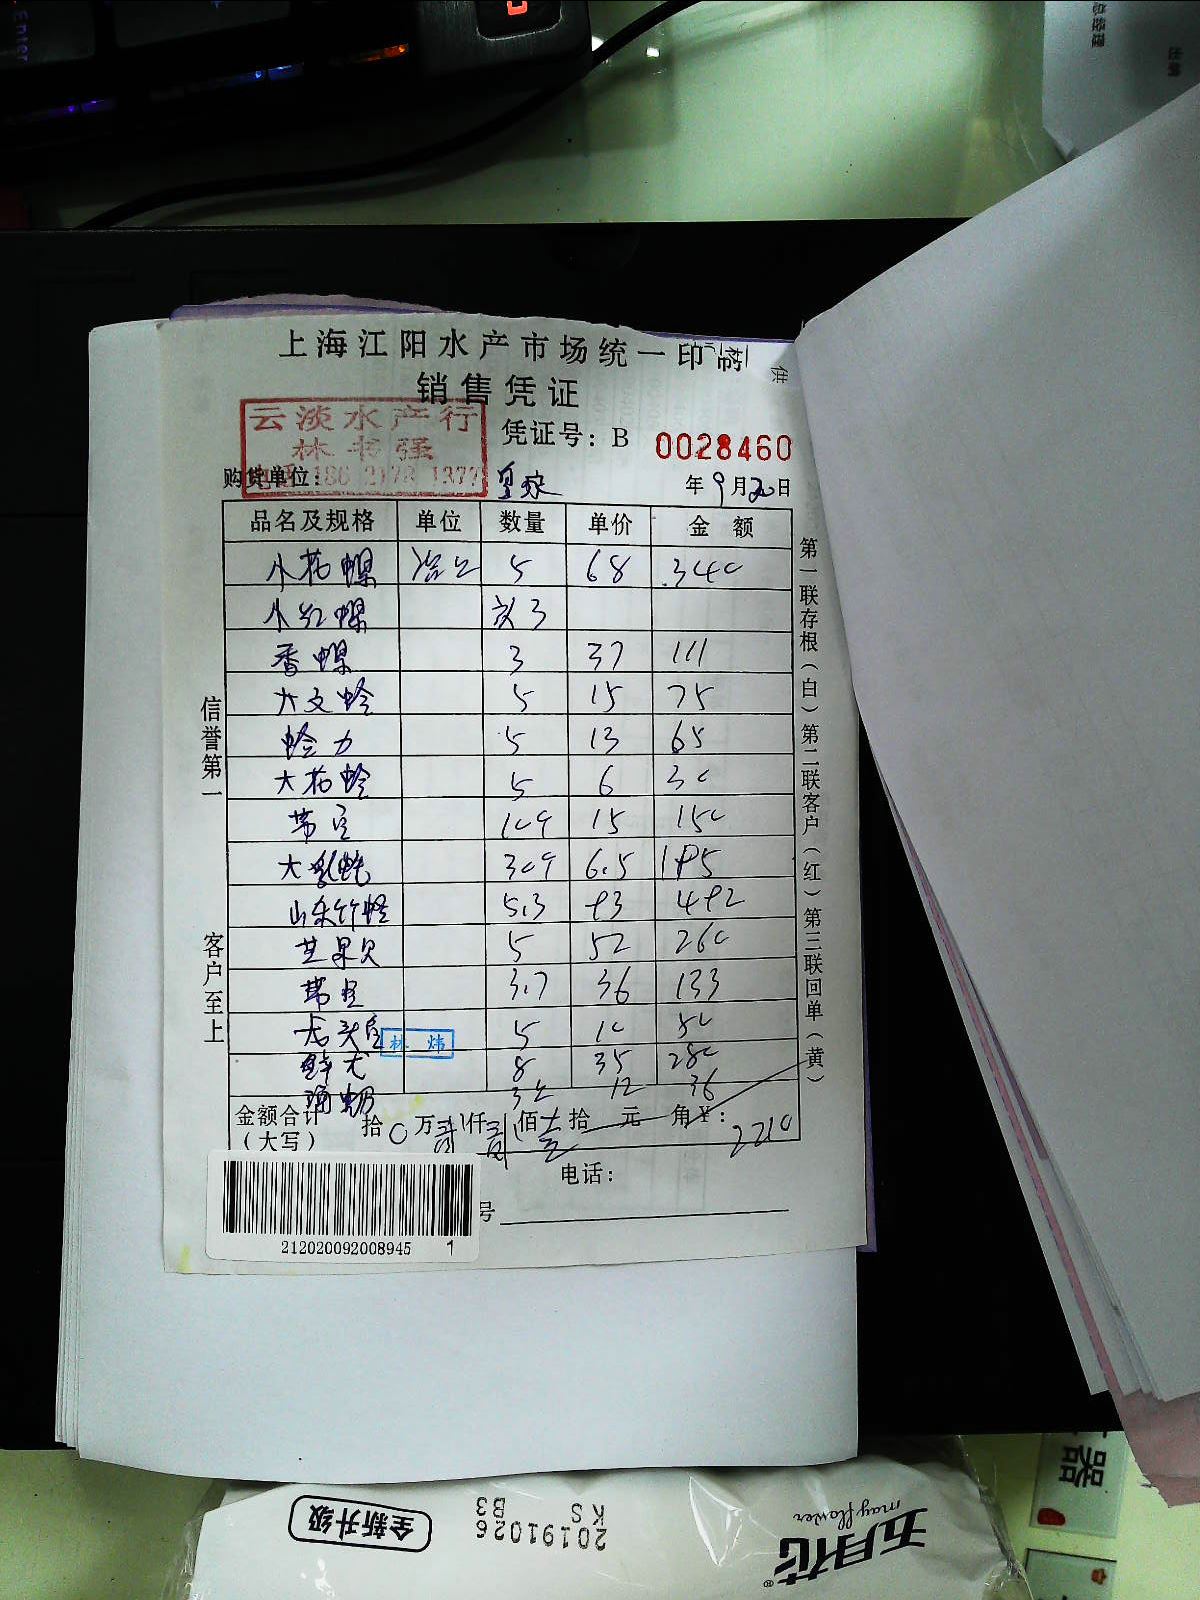 Enter
总经理
出纳
上海江阳水产市场统一印制
供
销售凭证
云淡水产行
林书强
凭证号：B 0028460
购货单位：
年 9 月 20 日
品名及规格 单位 数量 单价 金额
小花螺 5 68 340
小红螺 3
香螺 3 37 111
大文蛤 5 15 75
蛤力 5 13 65
大花蛤 5 6 30
15 150
大 6.5 195
山东竹蛏 5.3 93 492
芒果贝 5 52 260
3.7 36 133
5 10 50
8 35 280
12 36
林炜
金额合计
（大写）
拾 0 万 贰 仟 贰 佰 壹 拾 元 角 ¥： 2210
电话：
号
信誉第一
客户至上
第一联存根（白）第二联客户（红）第三联回单（黄）
212020092008945 1
器
全新升级
20191026
KS
B3
五月花
mayflower
®